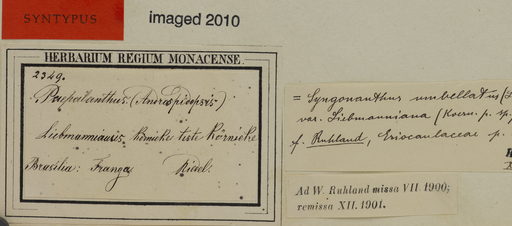 SYNTYPUS
imaged 2010
HERBARIUM REGIUM MONACENSE.
2349.
Paepalanthus. (Andraspidopsis)
Liebmannianus Körnicke teste Körnicke
Brasilia: Franca Riedel.
= Syngonanthus umbellatus (L
var. Liebmanniana (Koern. p. sp
f. Ruhland, Eriocaulaceae p.
Ad W. Ruhland missa VII. 1900;
remissa XII. 1901.